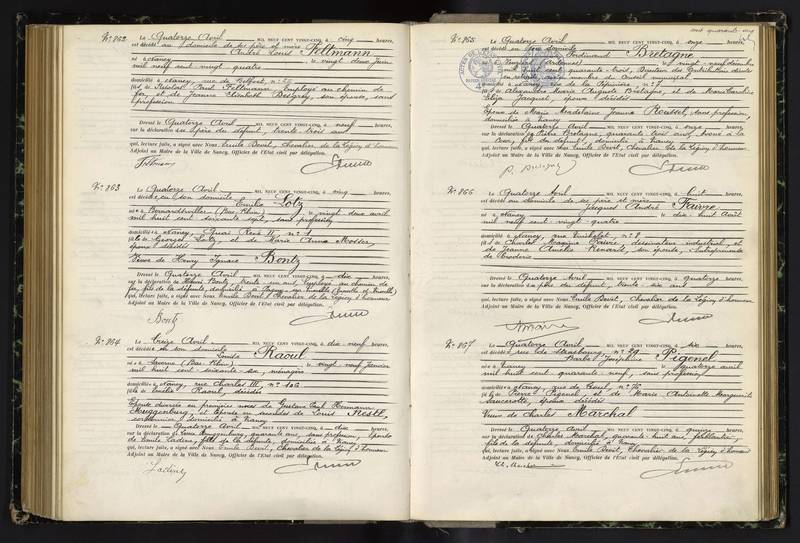 N° 862
Le Quatorze Avril MIL NEUF CENT VINGT-CINQ, à cinq heures,
est décédé au domicile de ses père et mère
André Louis Feltmann
né à Nancy, le vingt deux Juin
mil neuf cent vingt quatre
domicilié à Nancy, rue de Belfort, n°
fils de Paul Feltmann employé au chemin de
fer, et de Jeanne Elisabeth son épouse, sans
profession
Dressé le Quatorze Avril MIL NEUF CENT VINGT-CINQ, à neuf heures,
sur la déclaration du père du défunt, trente trois ans
qui, lecture faite, a signé avec Nous Emile Devit, Chevalier de la Légion d'honneur
Adjoint au Maire de la Ville de Nancy, Officier de l'Etat civil par délégation.
N° 863
Le Quatorze Avril MIL NEUF CENT VINGT-CINQ, à cinq heures,
est décédée en son domicile
Emilie Lotz
née à Bernardswiller (Bas-Rhin), le vingt deux avril
mil huit cent soixante sept, sans profession
domiciliée à Nancy, Quai René II, n° 1
fille de Georges Lotz et de Marie Anna Mosser,
époux décédés
Veuve de Henry Ignace Bontz
Dressé le Quatorze Avril MIL NEUF CENT VINGT-CINQ, à dix heures,
sur la déclaration de Henri Bontz, trente un ans, employé au chemin de
fer, fils de la défunte, domicilié à
qui, lecture faite, a signé avec Nous Emile Devit, Chevalier de la Légion d'honneur
Adjoint au Maire de la Ville de Nancy, Officier de l'Etat civil par délégation.
Bontz
N° 864
Le Treize Avril MIL NEUF CENT VINGT-CINQ, à dix neuf heures,
est décédée en son domicile
Louise Raoul
née à Saverne (Bas-Rhin), le vingt neuf Janvier
mil huit cent soixante six, ménagère
domiciliée à Nancy, rue Charles III, n° 106
fille de Emélie Raoul, décédée
Epouse divorcée en premières noces de Gustave Paul Hermann
Muggenburg, et épouse en secondes de Louis Nestl,
domicilié à Nancy
Dressé le Quatorze Avril MIL NEUF CENT VINGT-CINQ, à dix heures,
sur la déclaration de Muggenburg, quarante ans, sans profession, épouse
de Emile fille de la défunte, domiciliée à Nancy
qui, lecture faite, a signé avec Nous Emile Devit, Chevalier de la Légion d'honneur
Adjoint au Maire de la Ville de Nancy, Officier de l'Etat civil par délégation.
N° 865
Le Quatorze Avril MIL NEUF CENT VINGT-CINQ, à onze heures,
est décédé en son domicile
Ferdinand Bretagne
né à (Ardennes), le vingt neuf décembre
mil huit cent quarante trois, Directeur des Contributions directes
en retraite
domicilié à Nancy, rue de la Pépinière, n°
fils de Alexandre Marie Auguste Bretagne, et de Marie Caroline
Elisa Jacquel, époux décédés
Epoux de Marie Madeleine Jeanne Roussel, sans profession,
domiciliée à Nancy
Dressé le Quatorze Avril MIL NEUF CENT VINGT-CINQ, à onze heures,
sur la déclaration de Pierre Bretagne, quarante trois ans, avocat à la
Cour, fils du défunt, domicilié à Nancy
qui, lecture faite, a signé avec Nous Emile Devit, Chevalier de la Légion d'honneur
Adjoint au Maire de la Ville de Nancy, Officier de l'Etat civil par délégation.
P. Bretagne
N° 866
Le Quatorze Avril MIL NEUF CENT VINGT-CINQ, à huit heures,
est décédé au domicile de ses père et mère
Jacques André Faivre
né à Nancy, le dix huit Août
mil neuf cent vingt quatre
domicilié à Nancy, rue n° 8
fils de Charles Maxime Faivre dessinateur industriel, et
de Jeanne Amélie Renard, son épouse,
de Broderie
Dressé le Quatorze Avril MIL NEUF CENT VINGT-CINQ, à quatorze heures,
sur la déclaration du père du défunt, trente six ans
qui, lecture faite, a signé avec Nous Emile Devit, Chevalier de la Légion d'honneur
Adjoint au Maire de la Ville de Nancy, Officier de l'Etat civil par délégation.
N° 867
Le Quatorze Avril MIL NEUF CENT VINGT-CINQ, à six heures,
est décédée rue de Strasbourg, n°
Barbe Joséphine Pigonel
née à Nancy, le quatorze avril
mil huit cent quarante neuf, sans profession
domiciliée à Nancy, rue de Toul, n° 76
fille de Pierre Pigonel, et de Marie Antoinette Marguerite
époux décédés
Veuve de Charles Marchal
Dressé le Quatorze Avril MIL NEUF CENT VINGT-CINQ, à quinze heures,
sur la déclaration de Charles Marchal, quarante huit ans, ferblantier,
fils de la défunte, domicilié à Nancy
qui, lecture faite, a signé avec Nous Emile Devit, Chevalier de la Légion d'honneur
Adjoint au Maire de la Ville de Nancy, Officier de l'Etat civil par délégation.